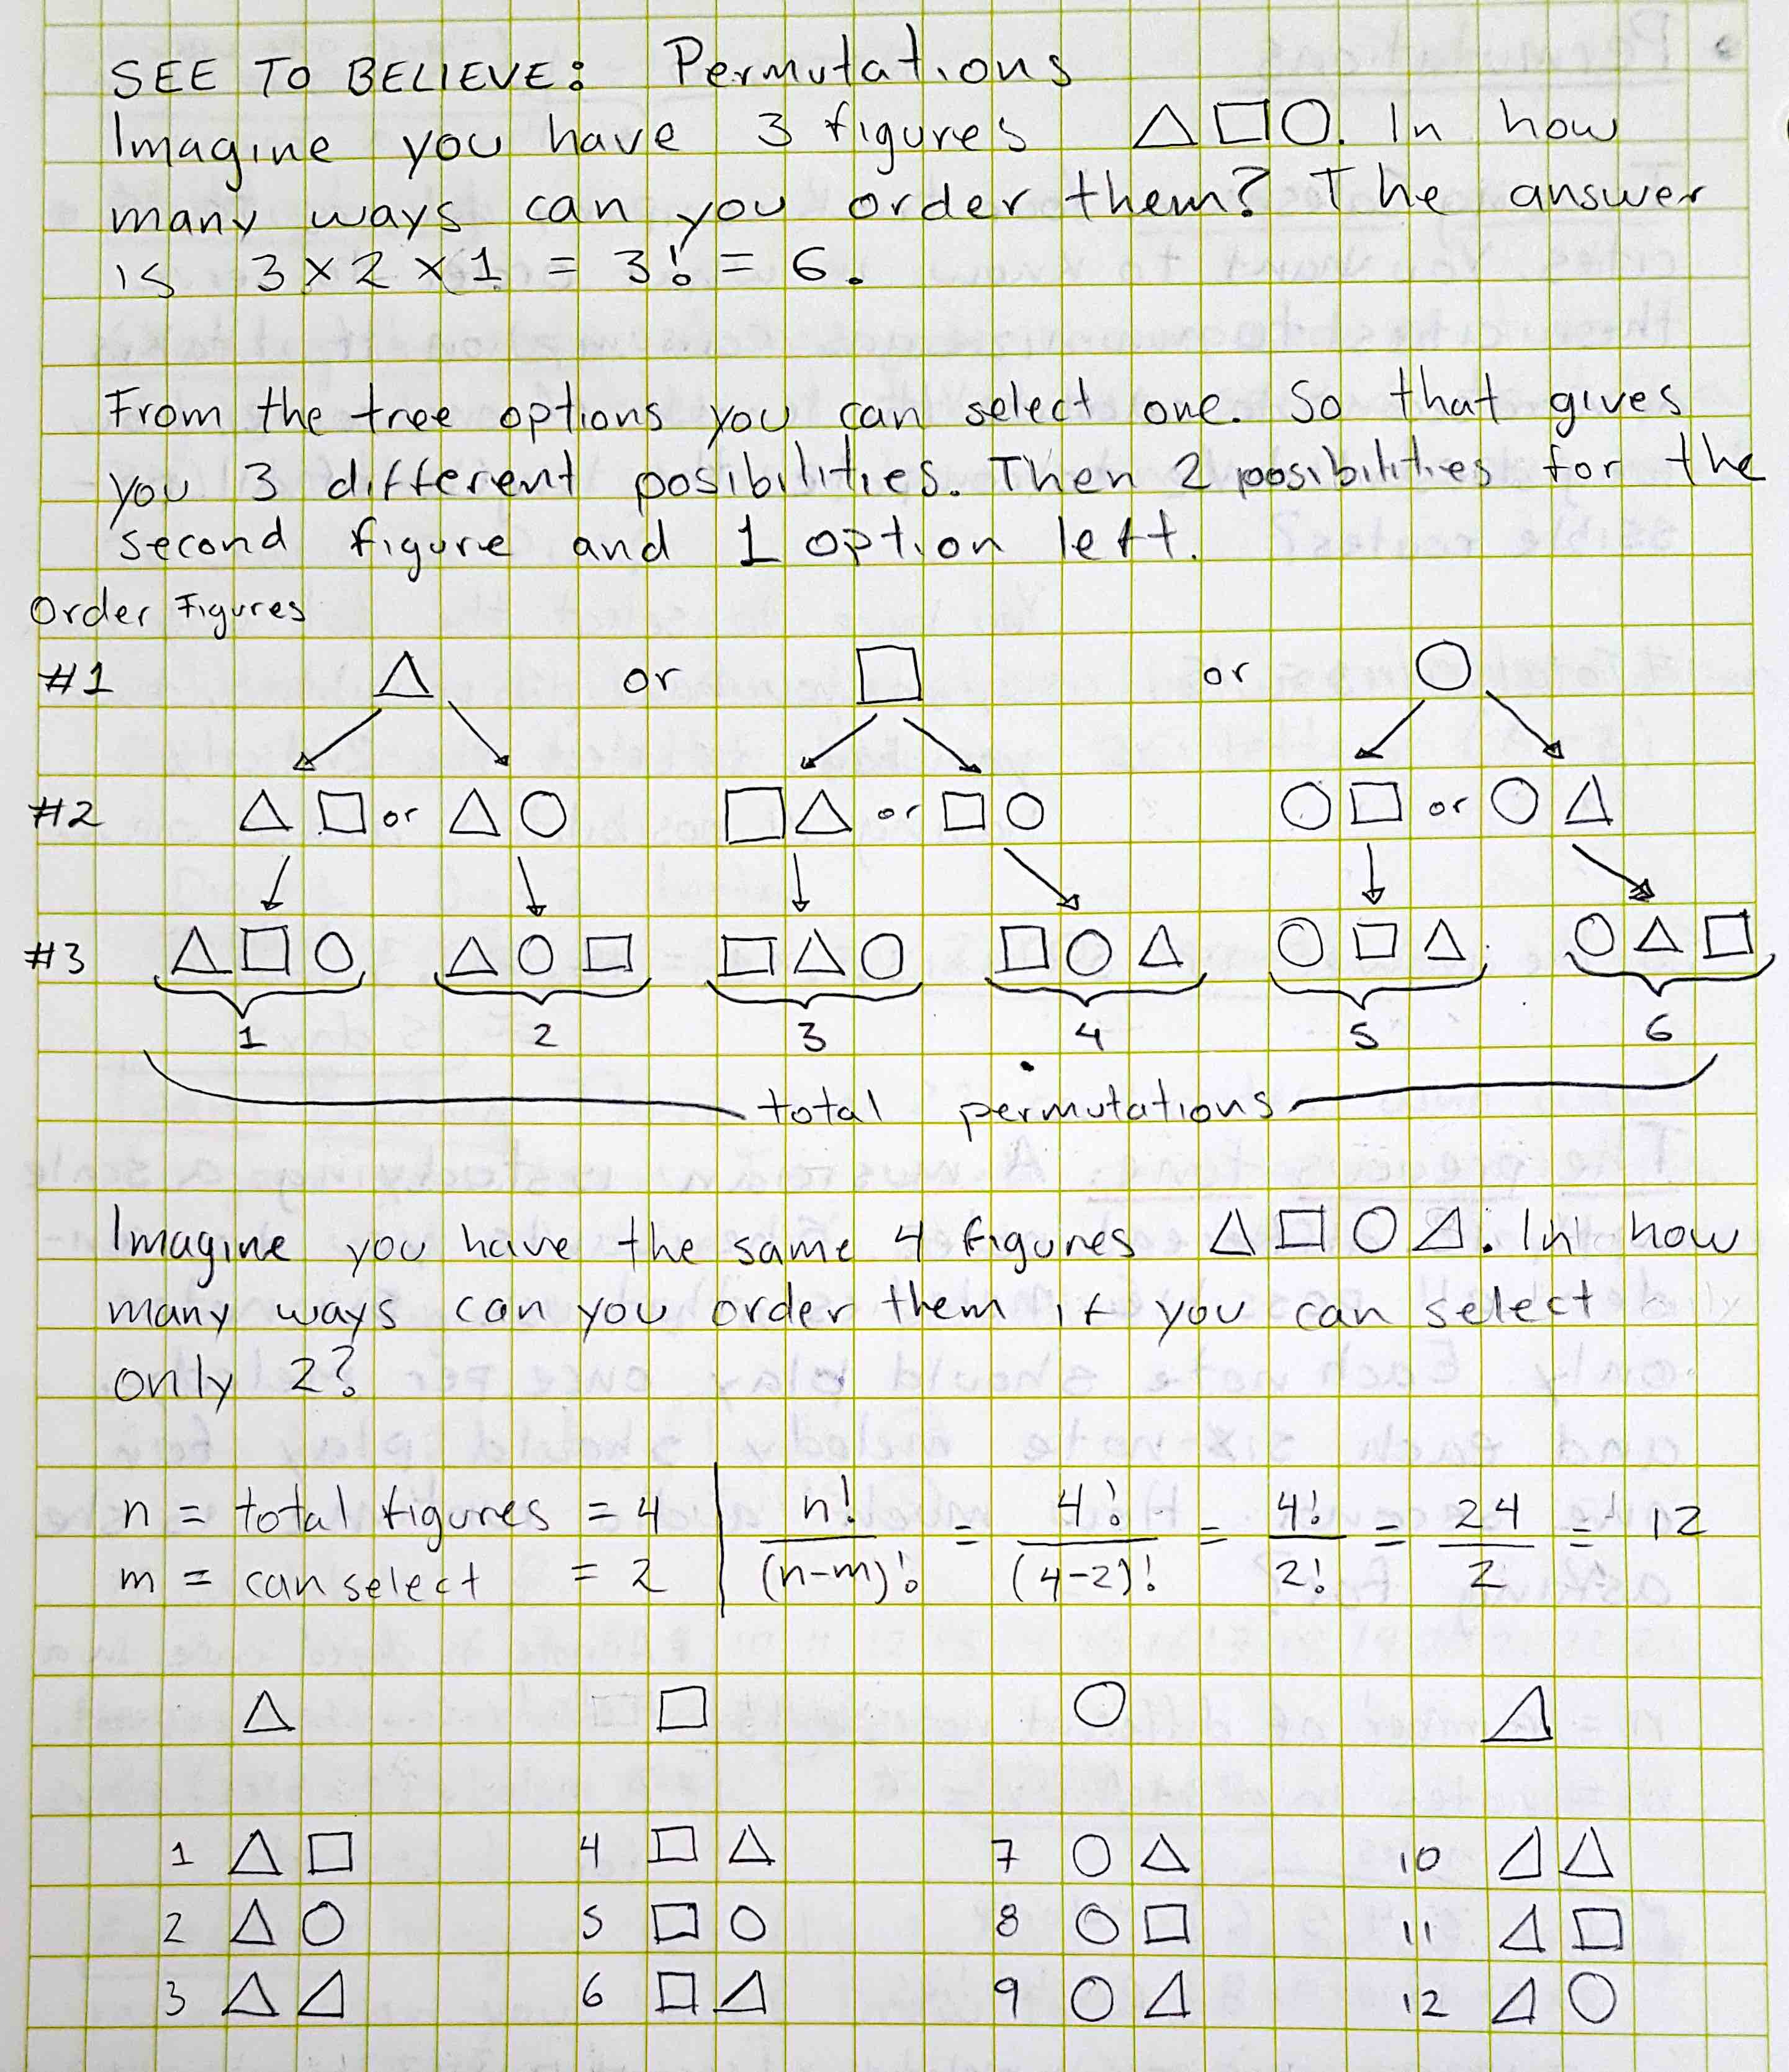 SEE TO BELIEVE: Permutations
Imagine you have 3 figures △□○. In how
many ways can you order them? The answer
is 3 × 2 × 1 = 3! = 6.
From the tree options you can select one. So that gives
you 3 different posibilities. Then 2 posibilities for the
second figure and 1 option left.
Order Figures
#1 △ or □ or ○
#2 △ □ or △ ○ □ △ or □ ○ ○ □ or ○ △
#3 △ □ ○ △ ○ □ □ △ ○ □ ○ △ ○ □ △ ○ △ □
1 2 3 4 5 6
total permutations
Imagine you have the same 4 figures △ □ ○ ◿. In how
many ways can you order them if you can select
only 2?
n = total figures = 4 | n!/(n-m)! = 4!/(4-2)! = 4!/2! = 24/2 = 12
m = can select = 2
△ □ ○ ◿
1 △ □ 4 □ △ 7 ○ △ 10 ◿ △
2 △ ○ 5 □ ○ 8 ○ □ 11 ◿ □
3 △ ◿ 6 □ ◿ 9 ○ ◿ 12 ◿ ○